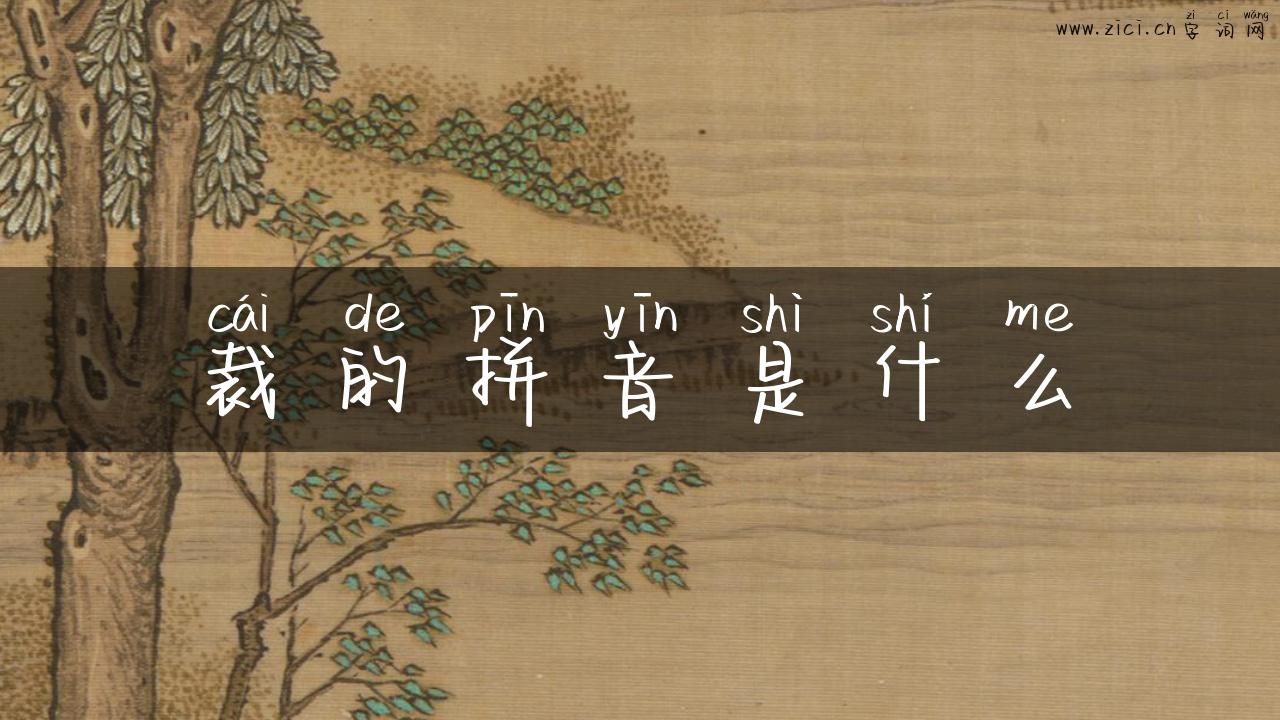 zì cí wǎng
www.zici.cn 字词网
cái de pīn yīn shì shí me
裁的拼音是什么